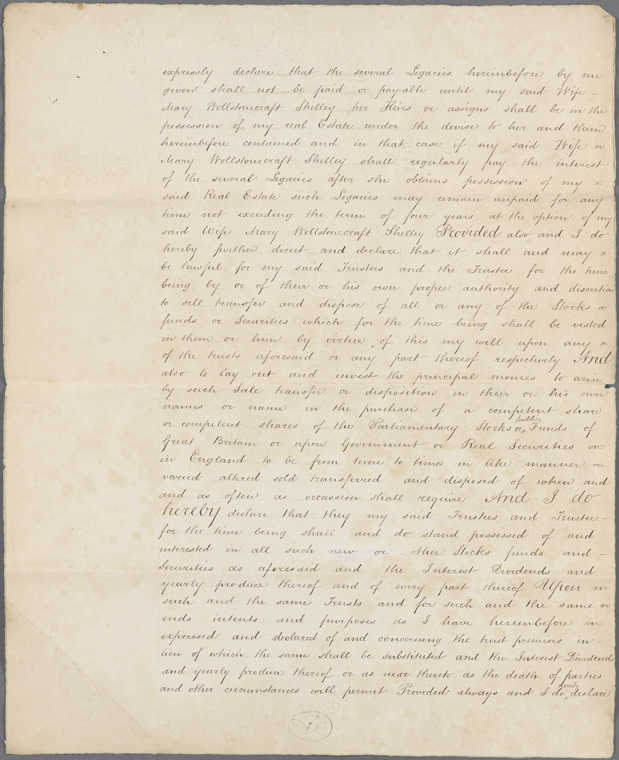 expressly declare that the several Legacies hereinbefore by me
given shall not be paid or payable until my said Wife
Mary Wollstonecraft Shelley her Heirs or assigns shall be in the
possession of my real Estate under the devise to her and them
hereinbefore contained and in that case if my said Wife
Mary Wollstonecraft Shelley shall regularly pay the interest
of the several Legacies after she obtains possession of my
said Real Estate such Legacies may remain unpaid for any
time not exceeding the term of four years at the option of my
said Wife Mary Wollstonecraft Shelley Provided also and I do
hereby further direct and declare that it shall and may
be lawful for my said Trustees and the Trustee for the time
being by or of their or his own proper authority and discretion
to sell transfer and dispose of all or any of the Stocks
funds or Securities which for the time being shall be vested
in them or him by virtue of this my will upon any
of the trusts aforesaid or any part thereof respectively And
also to lay out and invest the principal monies to arise
by such Sale transfer or disposition in their or his own
names or name in the purchase of a competent share
or competent shares of the Parliamentary Stocks or public Funds of
Great Britain or upon Government or Real Securities
in England to be from time to time in like manner
varied altered sold transferred and disposed of when and
and as often as occassion shall require And I do
hereby declare that they my said Trustees and Trustee
for the time being shall and do stand possessed of and
interested in all such new or other Stocks funds and
Securities as aforesaid and the Interest Dividends and
yearly produce thereof and of every part thereof Upon
such and the same Trusts and for such and the same
ends intents and purposes as I have hereinbefore
expressed and declared of and concerning the trust premises in
lieu of which the same shall be substituted and the Interest Dividends
and yearly produce thereof or as near thereto as the death of parties
and other circumstances will permit Provided always and I do hereby declare